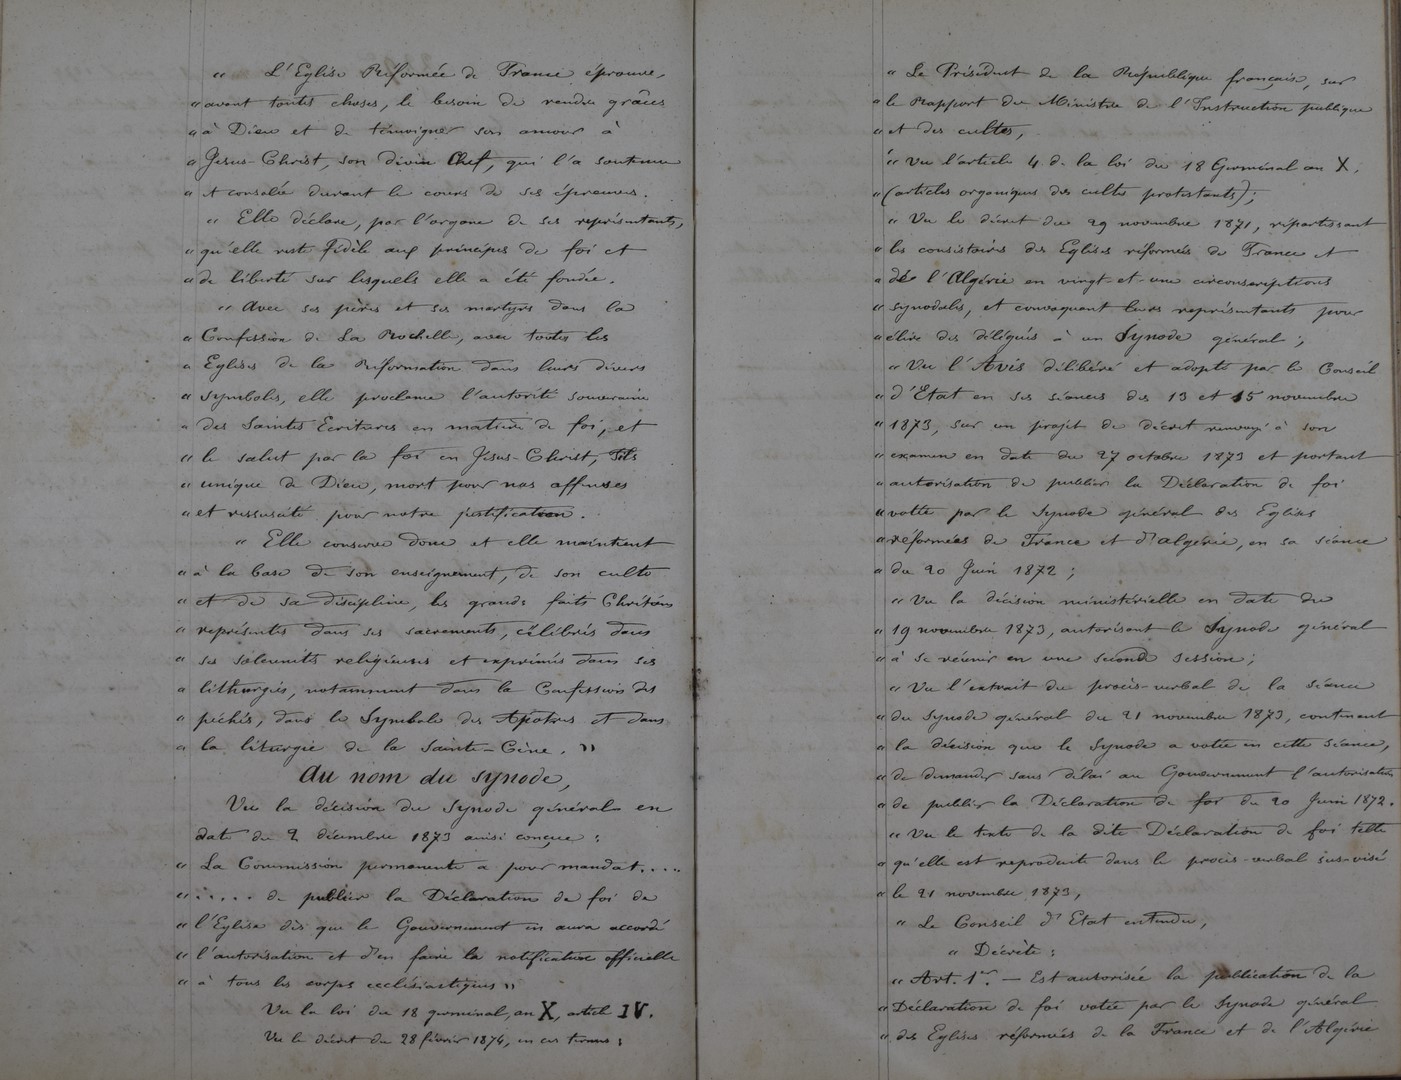 " L'Eglise Réformée de France éprouve,
" avant toutes choses, le besoin de rendre grâces
" à Dieu et de témoigner son amour à
" Jésus-Christ, son divin Chef, qui l'a soutenue
" et consolée durant le cours de ses épreuves.
" Elle déclare, par l'organe de ses représentants,
" qu'elle reste fidèle aux principes de foi et
" de liberté sur lesquels elle a été fondée.
" Avec ses pères et ses martyrs dans la
" Confession de La Rochelle, avec toutes les
" Eglises de la Réformation dans leurs divers
" symboles, elle proclame l'autorité souveraine
" des Saintes Ecritures en matière de foi, et
" le salut par la foi en Jésus-Christ, Fils
" unique de Dieu, mort pour nos offenses
" et ressuscité pour notre justification.
" Elle conserve donc et elle maintient
" à la base de son enseignement, de son culte
" et de sa discipline, les grands faits Chrétiens
" représentés dans ses sacrements, célébrés dans
" ses solennités religieuses et exprimés dans ses
" lithurgies, notamment dans la Confession des
" péchés, dans le Symbole des Apôtres et dans
" la liturgie de la Sainte-Cène. "
Au nom du synode,
Vu la décision du Synode général en
date du 2 décembre 1873 ainsi conçue :
" La Commission permanente a pour mandat....
" ..... de publier la Déclaration de foi de
" l'Eglise dès que le Gouvernement en aura accordé
" l'autorisation et d'en faire la notification officielle
" à tous les corps ecclésiastiques "
Vu la loi du 18 germinal, an X, article IV.
Vu le décret du 28 février 1874, en ces termes :
" Le Président de la République française, sur
" le Rapport du Ministre de l'Instruction publique
" et des cultes,
" Vu l'article 4 de la loi du 18 Germinal an X,
" (articles organiques des cultes protestants) ;
" Vu le décret du 29 novembre 1871, répartissant
" les consistoires des Eglises réformées de France et
" de l'Algérie en vingt-et-une circonscriptions
" synodales, et convoquant leurs représentants pour
" élire des délégués à un Synode général ;
" Vu l'Avis délibéré et adopté par le Conseil
" d'Etat en ses séances des 13 et 15 novembre
" 1873, sur un projet de décret renvoyé à son
" examen en date du 27 octobre 1873 et portant
" autorisation de publier la Déclaration de foi
" votée par le Synode général des Eglises
" réformées de France et d'algérie, en sa séance
" du 20 Juin 1872 ;
" Vu la décision ministérielle en date du
" 19 novembre 1873, autorisant le Synode général
" à se réunir en une seconde session ;
" Vu l'extrait du procès-verbal de la séance
" du Synode général du 21 novembre 1873, contenant
" la décision que le Synode a votée en cette séance,
" de demander sans délai au Gouvernement l'autorisation
" de publier la Déclaration de foi du 20 Juin 1872.
" Vu le texte de la dite Déclaration de foi telle
" qu'elle est reproduite dans le procès-verbal sus-visé
" le 21 novembre 1873,
" Le Conseil d'Etat entendu,
" Décrète :
" Art. 1er. — Est autorisée la publication de la
" Déclaration de foi votée par le Synode général
" des Eglises réformées de la France et de l'Algérie